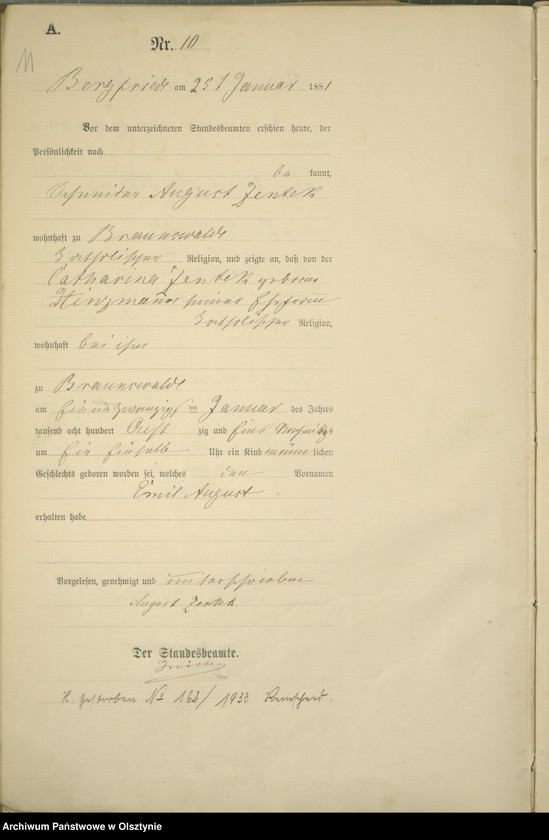 A.
Nr. 10
11
Bergfriede am 25t Januar 1881
Vor dem unterzeichneten Standesbeamten erschien heute, der
Persönlichkeit nach
be kannt,
Schneider August Zentek
wohnhaft zu Braunswalde
katholischer Religion, und zeigte an, daß von der
Catharina Zentek geborne
Hinzmann seiner Ehefrau
katholischer Religion,
wohnhaft bei ihm
zu Braunswalde
am ein und zwanzigsten Januar des Jahres
tausend acht hundert acht zig und eins Vormittags
um ein einhalb Uhr ein Kind männlichen
Geschlechts geboren worden sei, welches den Vornamen
Emil August
erhalten habe
Vorgelesen, genehmigt und unterschrieben
August Zentek.
Der Standesbeamte.
H. Gestorben No 162/1933 Remscheid.
Archiwum Państwowe w Olsztynie